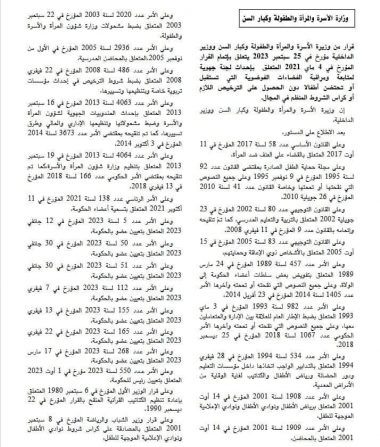 وزارة الأسرة والمرأة والطفولة وكبار السن
قرار من وزيرة الأسرة والمرأة والطفولة وكبار السن ووزير
الداخلية مؤرخ في 25 سبتمبر 2023 يتعلق بإتمام القرار
المؤرخ في 4 ماي 2021 المتعلق بإحداث لجنة جهوية
لمتابعة ومراقبة الفضاءات الفوضوية التي تستقبل
أو تحتضن أطفالا دون الحصول على الترخيص اللازم
أو كراس الشروط المنظم في المجال.
إن وزيرة الأسرة والمرأة والطفولة وكبار السن ووزير
الداخلية،
بعد الاطلاع على الدستور،
وعلى القانون الأساسي عدد 58 لسنة 2017 المؤرخ في 11
أوت 2017 المتعلق بالقضاء على العنف ضد المرأة،
وعلى مجلة حماية الطفل الصادرة بمقتضى القانون عدد 92
لسنة 1995 المؤرخ في 9 نوفمبر 1995 وعلى جميع النصوص
التي نقحتها أو تممتها وخاصة القانون عدد 41 لسنة 2010
المؤرخ في 26 جويلية 2010،
وعلى القانون التوجيهي عدد 80 لسنة 2002 المؤرخ في 23
جويلية 2002 المتعلق بالتربية والتعليم المدرسي، كما تم تنقيحه
وإتمامه بالقانون عدد 9 المؤرخ في 11 فيفري 2008،
وعلى القانون التوجيهي عدد 83 لسنة 2005 المؤرخ في 15
أوت 2005 المتعلق بالأشخاص ذوي الإعاقة وحمايتهم،
وعلى الأمر عدد 457 لسنة 1989 المؤرخ في 24 مارس
1989 المتعلق بتفويض بعض سلطات أعضاء الحكومة إلى
الولاة، وعلى جميع النصوص التي نقحته أو تممته وآخرها الأمر
عدد 1405 لسنة 2014 المؤرخ في 23 أفريل 2014،
وعلى الأمر عدد 982 لسنة 1993 المؤرخ في 3 ماي
1993 المتعلق بضبط الإطار العام للعلاقة بين الإدارة والمتعاملين
معها، وعلى جميع النصوص التي نقحته أو تممته وآخرها الأمر
الحكومي عدد 1067 لسنة 2018 المؤرخ في 25 ديسمبر
2018،
وعلى الأمر عدد 534 لسنة 1994 المؤرخ في 28 فيفري
1994 المتعلق بالتدابير الواجب اتخاذها داخل مؤسسات التعليم
ودور الحضانة ورياض الأطفال والكتاتيب لغاية الوقاية من
الأمراض المعدية،
وعلى الأمر عدد 1908 لسنة 2001 المؤرخ في 14 أوت
2001 المتعلق برياض الأطفال ونوادي الأطفال ونوادي الإعلامية
الموجهة للطفل،
وعلى الأمر عدد 1908 لسنة 2001 المؤرخ في 14 أوت
2001 المتعلق بالمحاضن،
وعلى الأمر عدد 2020 لسنة 2003 المؤرخ في 22 سبتمبر
2003 المتعلق بضبط مشمولات وزارة شؤون المرأة والأسرة
والطفولة،
وعلى الأمر عدد 2936 لسنة 2005 المؤرخ في الأول من
نوفمبر 2005، المتعلق بالمحاضن المدرسية،
وعلى الأمر عدد 486 لسنة 2008 المؤرخ في 22 فيفري
2008 المتعلق بضبط شروط الترخيص في إحداث مؤسسات
تربوية خاصة وتنظيمها وتسييرها،
وعلى الأمر عدد 4063 لسنة 2013 المؤرخ في 16 سبتمبر
2013 المتعلق بإحداث المندوبيات الجهوية لشؤون المرأة
والأسرة وبضبط مشمولاتها وتنظيمها الإداري والمالي وطرق
تسييرها، كما تم تنقيحه بمقتضى الأمر عدد 3673 لسنة 2014
المؤرخ في 3 أكتوبر 2014،
وعلى الأمر عدد 4064 لسنة 2013 المؤرخ في 19 سبتمبر
2013 المتعلق بتنظيم وزارة شؤون المرأة والأسرة، كما تم
تنقيحه بمقتضى الأمر الحكومي عدد 166 لسنة 2018 المؤرخ
في 13 فيفري 2018،
وعلى الأمر الرئاسي عدد 138 لسنة 2021 المؤرخ في 11
أكتوبر 2021 المتعلق بتسمية أعضاء الحكومة،
وعلى الأمر عدد 5 لسنة 2023 المؤرخ في 12 جانفي
2023 المتعلق بتعيين عضو بالحكومة،
وعلى الأمر عدد 50 لسنة 2023 المؤرخ في 30 جانفي
2023 المتعلق بتعيين عضو بالحكومة،
وعلى الأمر عدد 51 لسنة 2023 المؤرخ في 30 جانفي
2023 المتعلق بتعيين عضو بالحكومة،
وعلى الأمر عدد 112 لسنة 2023 المؤرخ في 7 فيفري
2023 المتعلق بتعيين عضو بالحكومة،
وعلى الأمر عدد 155 لسنة 2023 المؤرخ في 21 فيفري
2023 المتعلق بتعيين عضو بالحكومة،
وعلى الأمر عدد 165 لسنة 2023 المؤرخ في 22 فيفري
2023 المتعلق بتعيين عضو بالحكومة،
وعلى الأمر عدد 268 لسنة 2023 المؤرخ في 17 مارس
2023 المتعلق بتعيين عضو بالحكومة،
وعلى الأمر عدد 550 لسنة 2023 المؤرخ في 1 أوت 2023
المتعلق بتعيين رئيس للحكومة،
وعلى قرار الوزير الأول المؤرخ في 6 سبتمبر 1980 المتعلق
بتنظيم الكتاتيب القرآنية المنقح بالقرار المؤرخ في 22
ديسمبر 1990،
وعلى قرار وزير الشباب والرياضة المؤرخ في 8 سبتمبر
2001 المتعلق بالمصادقة على كراس شروط نوادي الأطفال
ونوادي الإعلامية الموجهة للطفل،